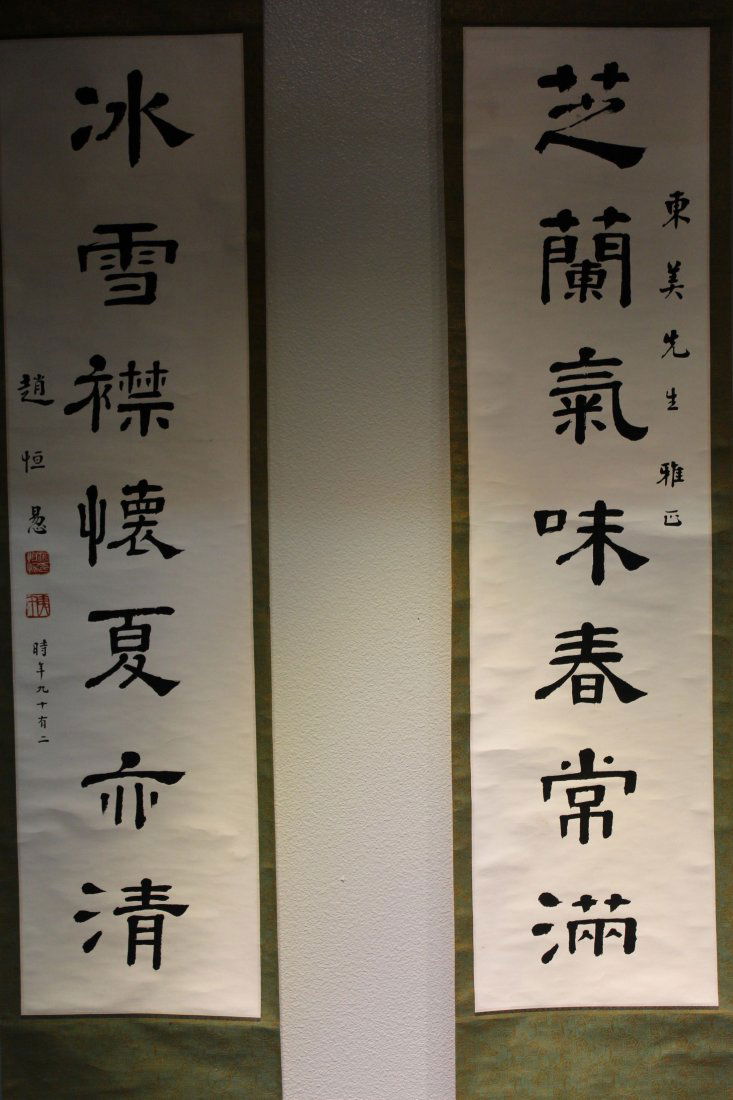 東美先生雅正
芝蘭氣味春常滿
冰雪襟懷夏亦清
趙恒惕
時年九十有二